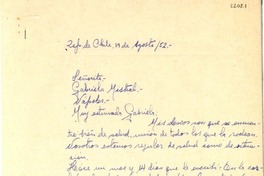 Rep. de Chile, 19 de Agosto/52.-
Señorita
Gabriela Mistral.
Nápoles.-
Muy estimada Gabriela: Mis deseos son que se encuentre
bien de salud, unión de todos los que la rodean.
Nosotros estamos regular de salud como de
Hace un mes y 14 días que le escribí.- En la